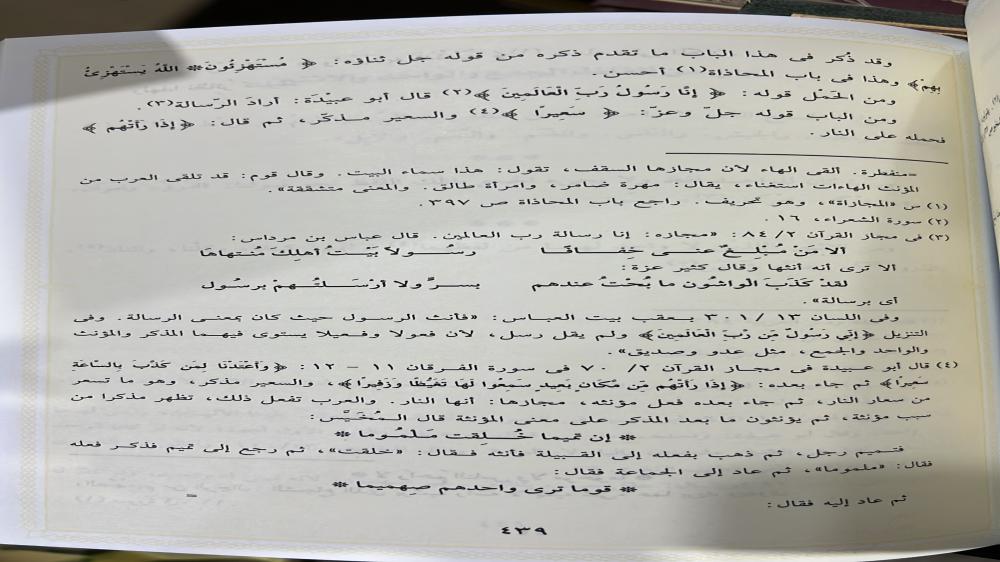 وقد ذُكر فى هذا الباب ما تقدم ذكره من قوله جل ثناؤه: ﴿ مُسْتَهْزِئُونَ* اللَّهُ يَسْتَهْزِئُ
بِهِمْ﴾ وهذا فى باب المحاذاة(١) أحسن.
ومن الحَمْل قوله: ﴿ إِنَّا رَسُولُ رَبِّ الْعَالَمِينَ ﴾(٢) قال أبو عبيْدَة: أرادَ الرّسالة(٣).
ومن الباب قوله جلّ وعزّ: ﴿ سَعِيرًا ﴾(٤) والسعير مذكّر، ثم قال: ﴿إِذَا رَأَتْهُم ﴾
فحمله على النار.
=منفطرة. ألقى الهاء لأن مجازها السقف، تقول: هذا سماء البيت. وقال قوم: قد تلقى العرب من
المؤنث الهاءات استغناء، يقال: مهرة ضامر، وامرأة طالق. والمعنى متشققة».
(١) س «المجازاة»، وهو تحريف. راجع باب المحاذاة ص ٣٩٧.
(٢) سورة الشعراء، ١٦.
(٣) فى مجاز القرآن ٢/ ٨٤: «مجازه: إنا رسالة رب العالمين. قال عباس بن مرداس:
ألا مَنْ مُبْلِغٌ عنى خِفافًا رسُولاً بَيْتُ أهلِكَ مُنتهاها
ألا ترى أنه أنثها وقال كثير عزة:
لقدْ كَذَبَ الْواشُون ما بُحْتُ عندهم بسرٍّ ولا أرْسَلتُهمْ برسُول
أى برسالة».
وفى اللسان ١٣ /٣٠١ يعقب بيت العباس: «فأنث الرسول حيث كان بمعنى الرسالة. وفى
التنزيل ﴿إِنِّي رَسُولٌ مِّن رَّبِّ الْعَالَمِينَ﴾ ولم يقل رسل، لأن فعولا وفعيلا يستوى فيهما المذكر والمؤنث
والواحد والجمع، مثل عدو وصديق».
(٤) قال أبو عبيدة فى مجاز القرآن ٢/ ٧٠ فى سورة الفرقان ١١ – ١٢: ﴿وَأَعْتَدْنَا لِمَن كَذَّبَ بِالسَّاعَةِ
سَعِيرًا﴾ ثم جاء بعده: ﴿إِذَا رَأَتْهُم مِّن مَّكَانٍ بَعِيدٍ سَمِعُوا لَهَا تَغَيُّظًا وَزَفِيرًا﴾، والسعير مذكر، وهو ما تسعر
من سعار النار، ثم جاء بعده فعل مؤنثه، مجازها: أنها النار. والعرب تفعل ذلك، تظهر مذكرا من
سبب مؤنثة، ثم يؤنثون ما بعد المذكر على معنى المؤنثة قال المُخَيَّس:
* إن تميما خُلِقت مَلْمُوما *
فتميم رجل، ثم ذهب بفعله إلى القبيلة فأنثه فقال: «خلقت»، ثم رجع إلى تميم فذكر فعله
فقال: «ملموما»، ثم عاد إلى الجماعة فقال:
* قوما ترى واحدهم صِهميما *
ثم عاد إليه فقال: =
٤٣٩